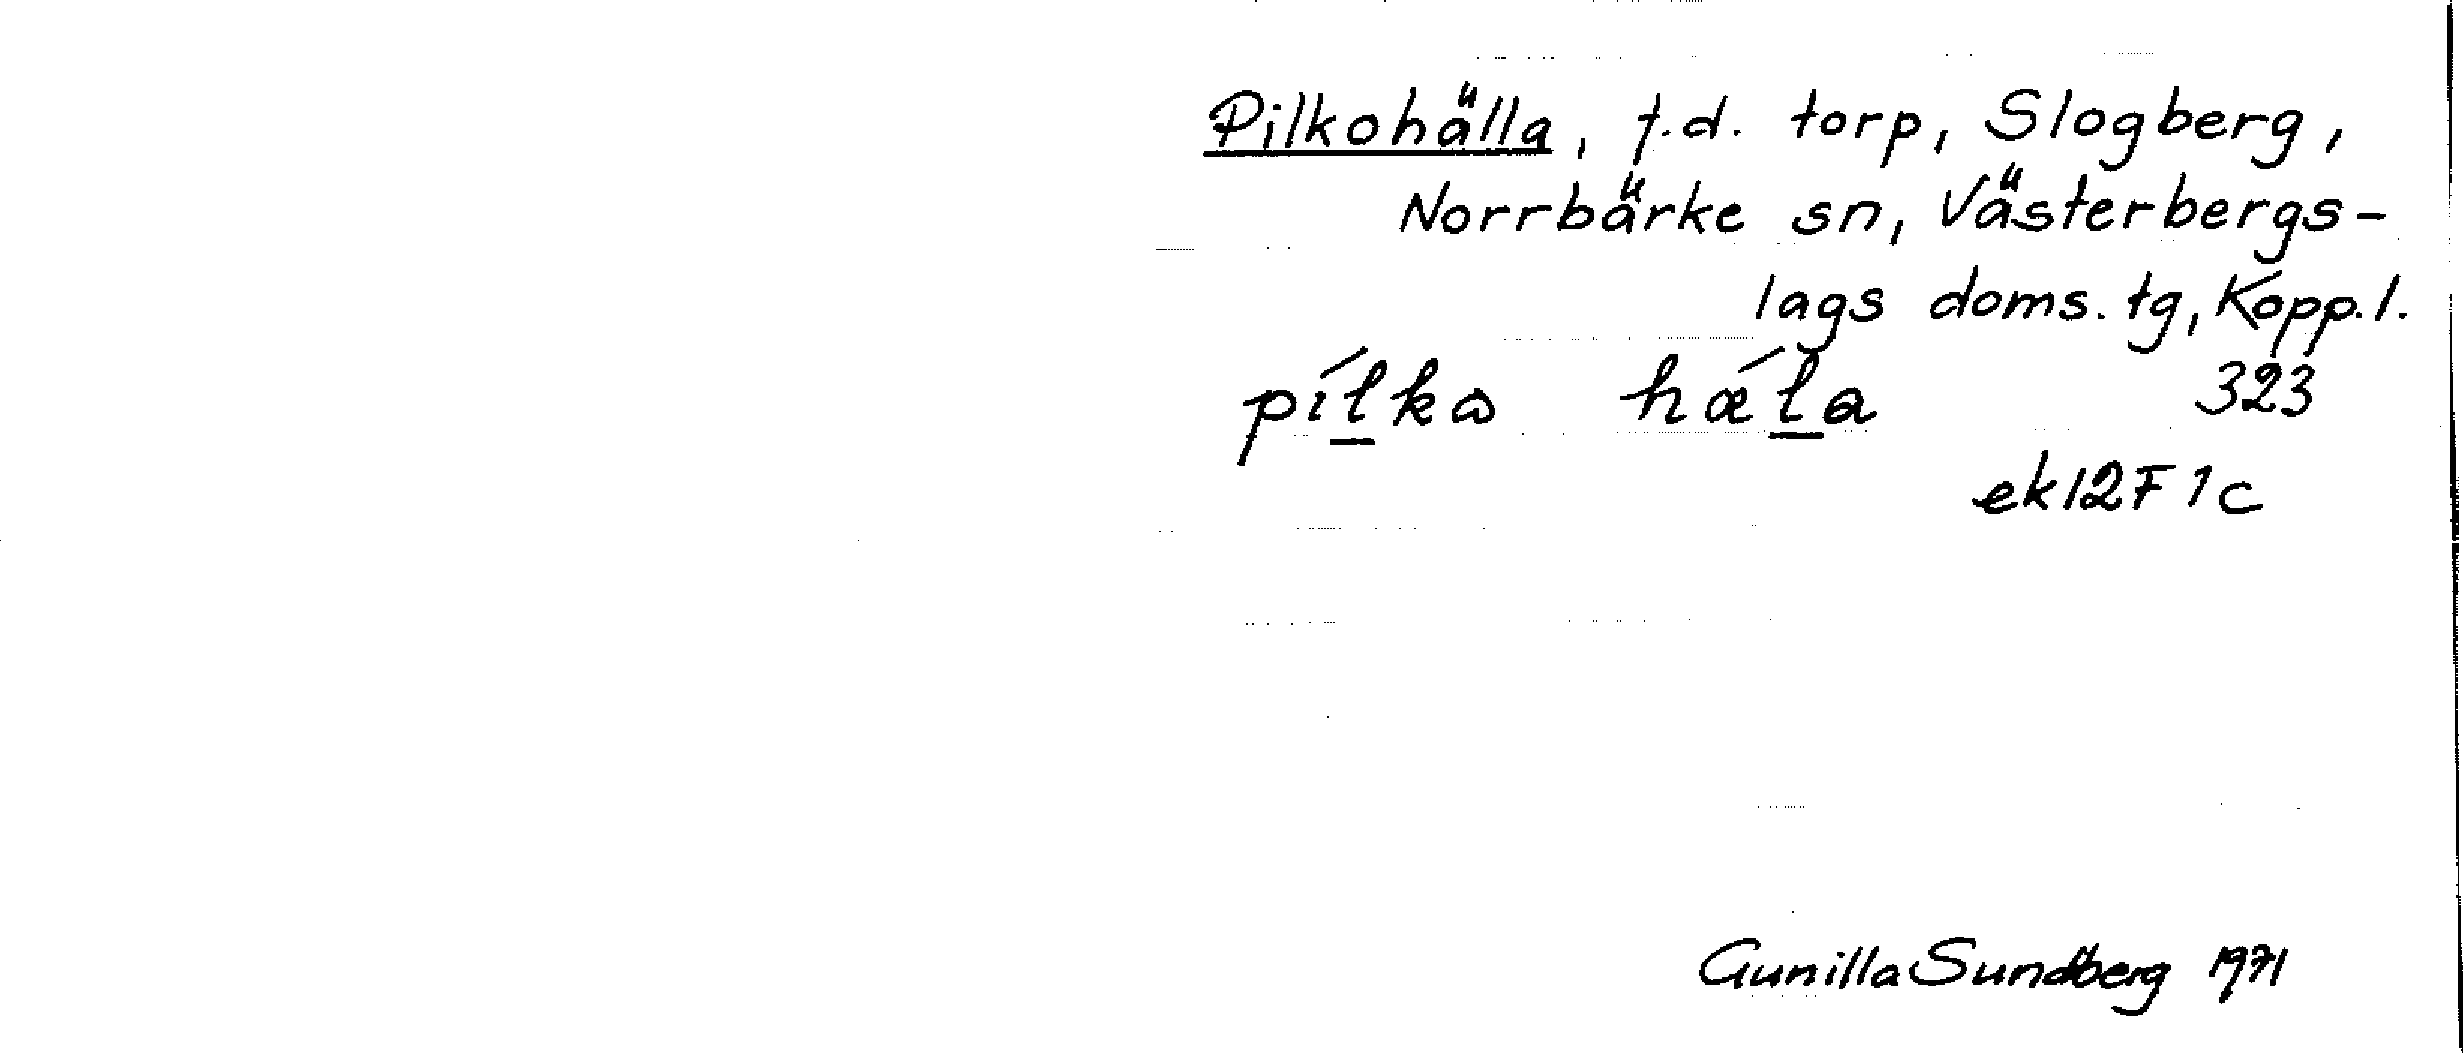 Pilkohälla, f.d. torp, Slogberg,
Norrbärke sn, Västerbergs-
lags doms. tg, Kopp. l.
pílka hǽla 323
ek 12F 1c
Gunilla Sundberg 1971